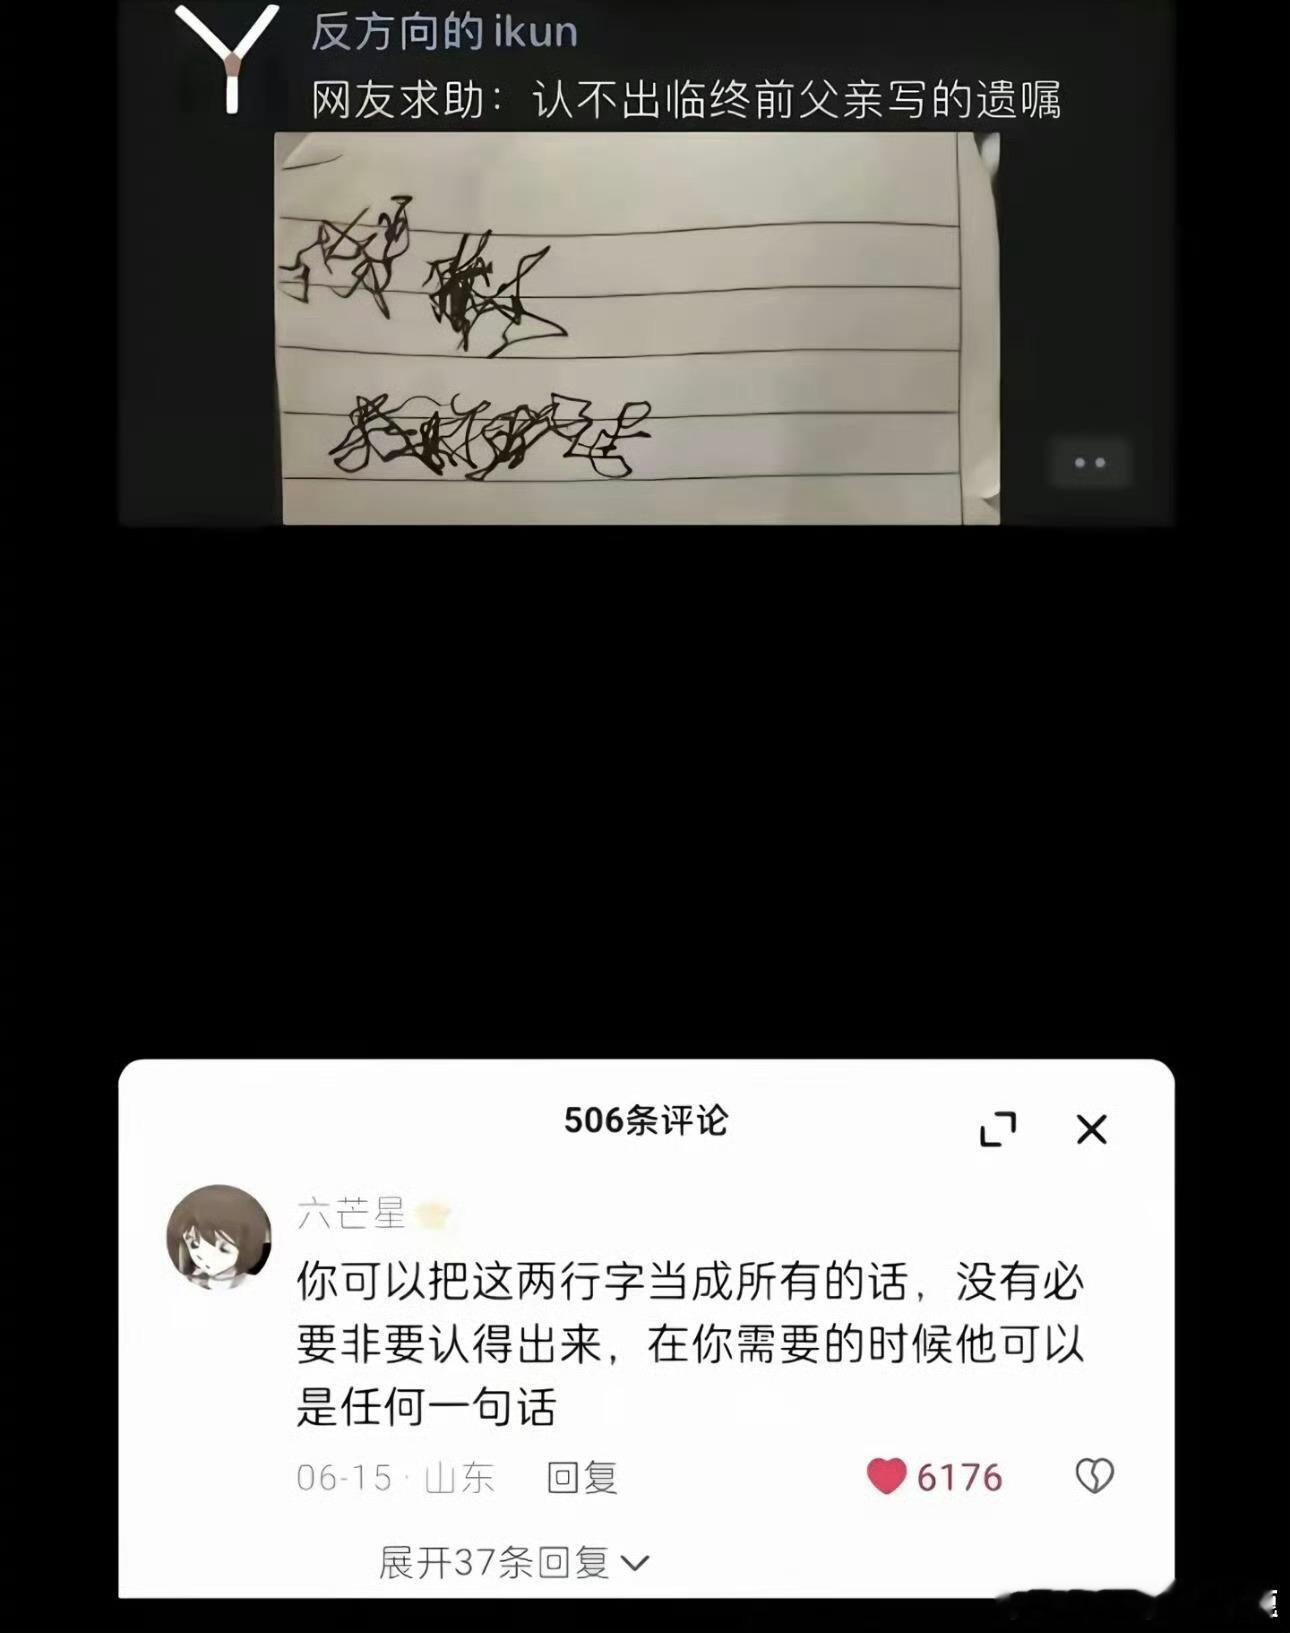 反方向的ikun
网友求助：认不出临终前父亲写的遗嘱
506条评论
六芒星
你可以把这两行字当成所有的话，没有必
要非要认得出来，在你需要的时候他可以
是任何一句话
06-15·山东 回复 6176
展开37条回复